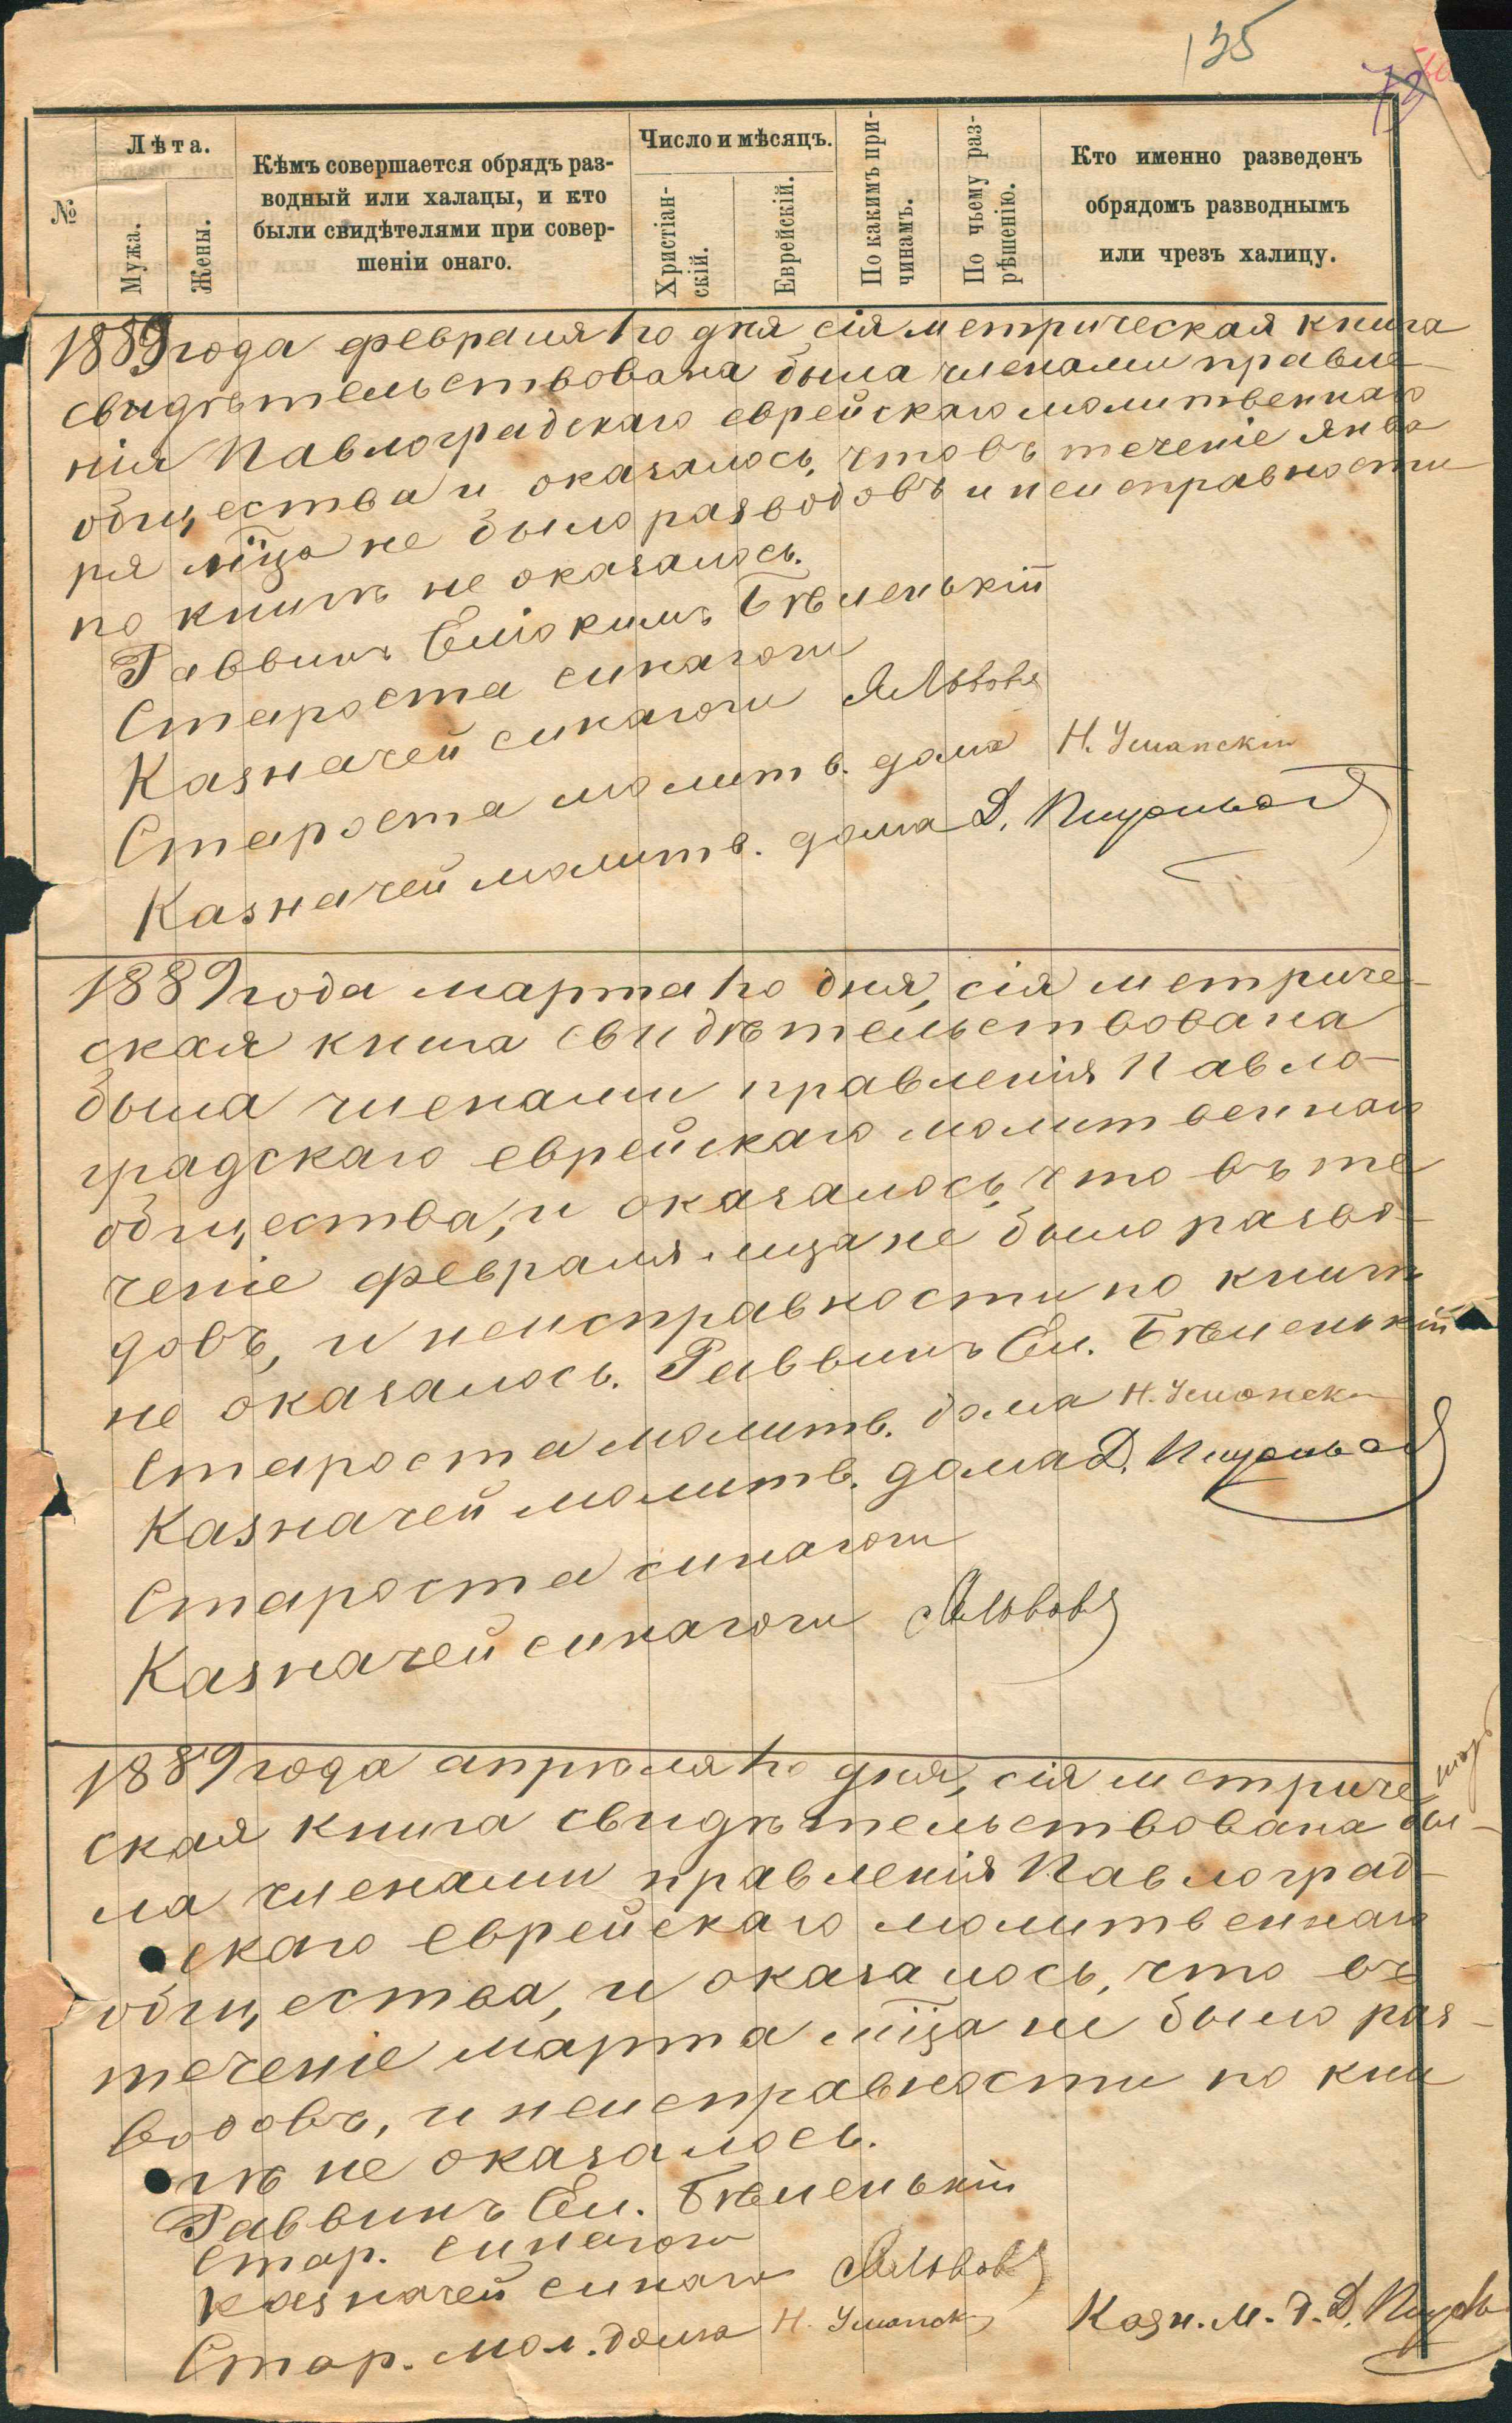 135
№
Лѣта.
Мужа.
Жены.
Кѣмъ совершается обрядъ раз-
водный или халацы, и кто
были свидѣтелями при совер-
шеніи онаго.
Число и мѣсяцъ.
Христіан-
скій.
Еврейскій.
По какимъ при-
чинамъ.
По чьему раз-
рѣшенію.
Кто именно разведенъ
обрядомъ разводнымъ
или чрезъ халицу.
1889 года февраля 1го дня, сія метрическая книга
свидѣтельствована была членами правле-
нія Павлоградскаго еврейскаго молитвеннаго
общества и оказалось, что въ теченіе янва
ря мѣца не было разводовъ и неисправности
по книгѣ не оказалось.
Раввинъ Еліокимъ Бѣленькій
Староста синагоги
Казначей синагоги АЛьвовъ
Староста молитв. дома Н. Уманскій
Казначей молитв. дома Д.
1889 года марта 1го дня, сія метриче-
ская книга свидѣтельствована
была членами правленія Павло-
градскаго еврейскаго молитвеннаго
общества, и оказалось, что въ те
ченіе февраля мца не было разво-
довъ, и неисправности по книгѣ
не оказалось. Раввинъ Ел. Бѣленькій
Староста молитв. дома Н. Уманск
Казначей молитв. дома Д.
Староста синагоги
Казначей синагоги АЛьвовъ
1889 года апрѣля 1го дня, сія метриче
ская книга свидѣтельствована бы-
ла членами правленія Павлоград-
скаго еврейскаго молитвеннаго
общества, и оказалось, что въ
теченіе марта мѣца не было раз-
водовъ, и неисправности по кни
гѣ не оказалось.
Раввинъ Ел. Бѣленькій
Стар. синагоги
Казначей синаго АЛьвовъ
Стар. мол. дома Н. Уманск Казн. М. д. Д.